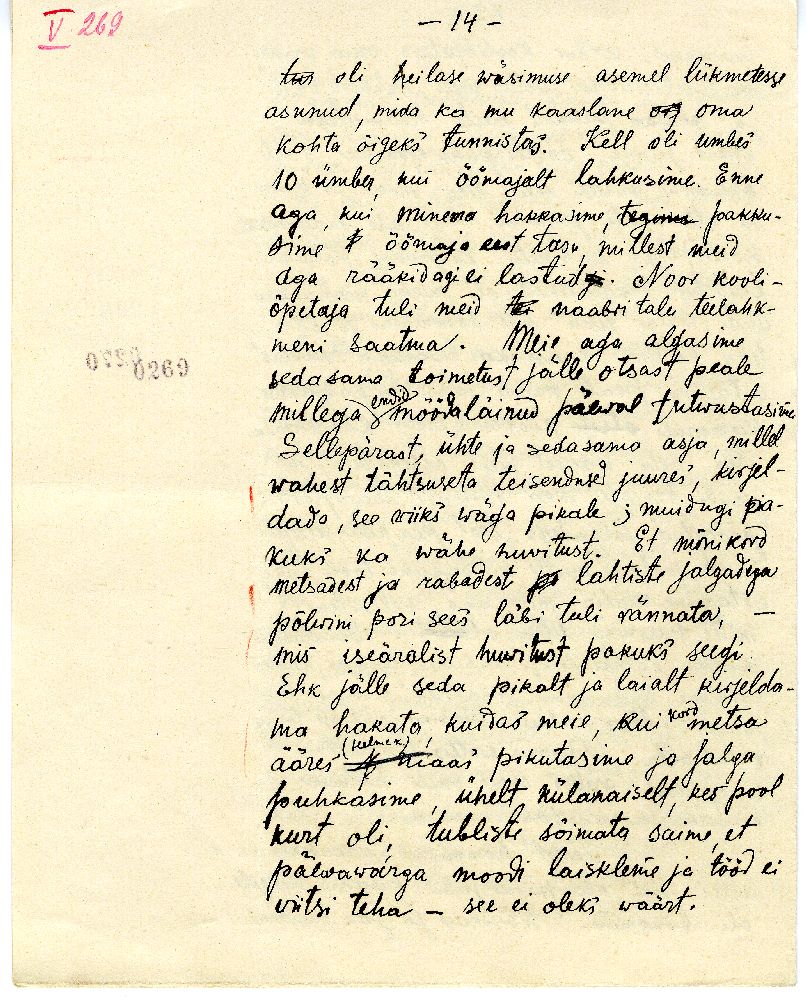 V 269
— 14 —
oli heilase wäsimuse asemel liikmetesse
asunud, mida ka mu kaaslane oma
kohta õigeks tunnistas. Kell oli umbes
10 ümber, kui öömajalt lahkusime. Enne
aga, kui minema hakkasime, pakku-
sime öömaja eest tasu, millest meid
aga rääkidagi ei lastud. Noor kooli-
õpetaja tuli meid naabri talu teelahk-
meni saatma. Meie aga algasime
sedasama toimetust jälle otsast peale
millega endid möödaläinud päewal
Sellepärast, ühte ja sedasama asja, millel
wahest tähtsuseta teisendused juures, kirjel-
dada, see wiiks wäga pikale; muidugi pa-
kuks ka wähe huvitust. Et mõnikord
metsadest ja rabadest lahtiste jalgadega
põlwini pori sees läbi tuli rännata, —
mis iseäralist huvitust pakuks seegi
Ehk jälle seda pikalt ja laialt kirjelda-
ma hakata, kuidas meie, kui kord metsa
ääres (Helmes) maas pikutasime ja jalga
puhkasime, ühelt külanaiselt, kes pool
kurt oli, tubliste sõimata saime, et
päewawarga moodi laiskleme ja tööd ei
viitsi teha — see ei oleks wäärt.
0269